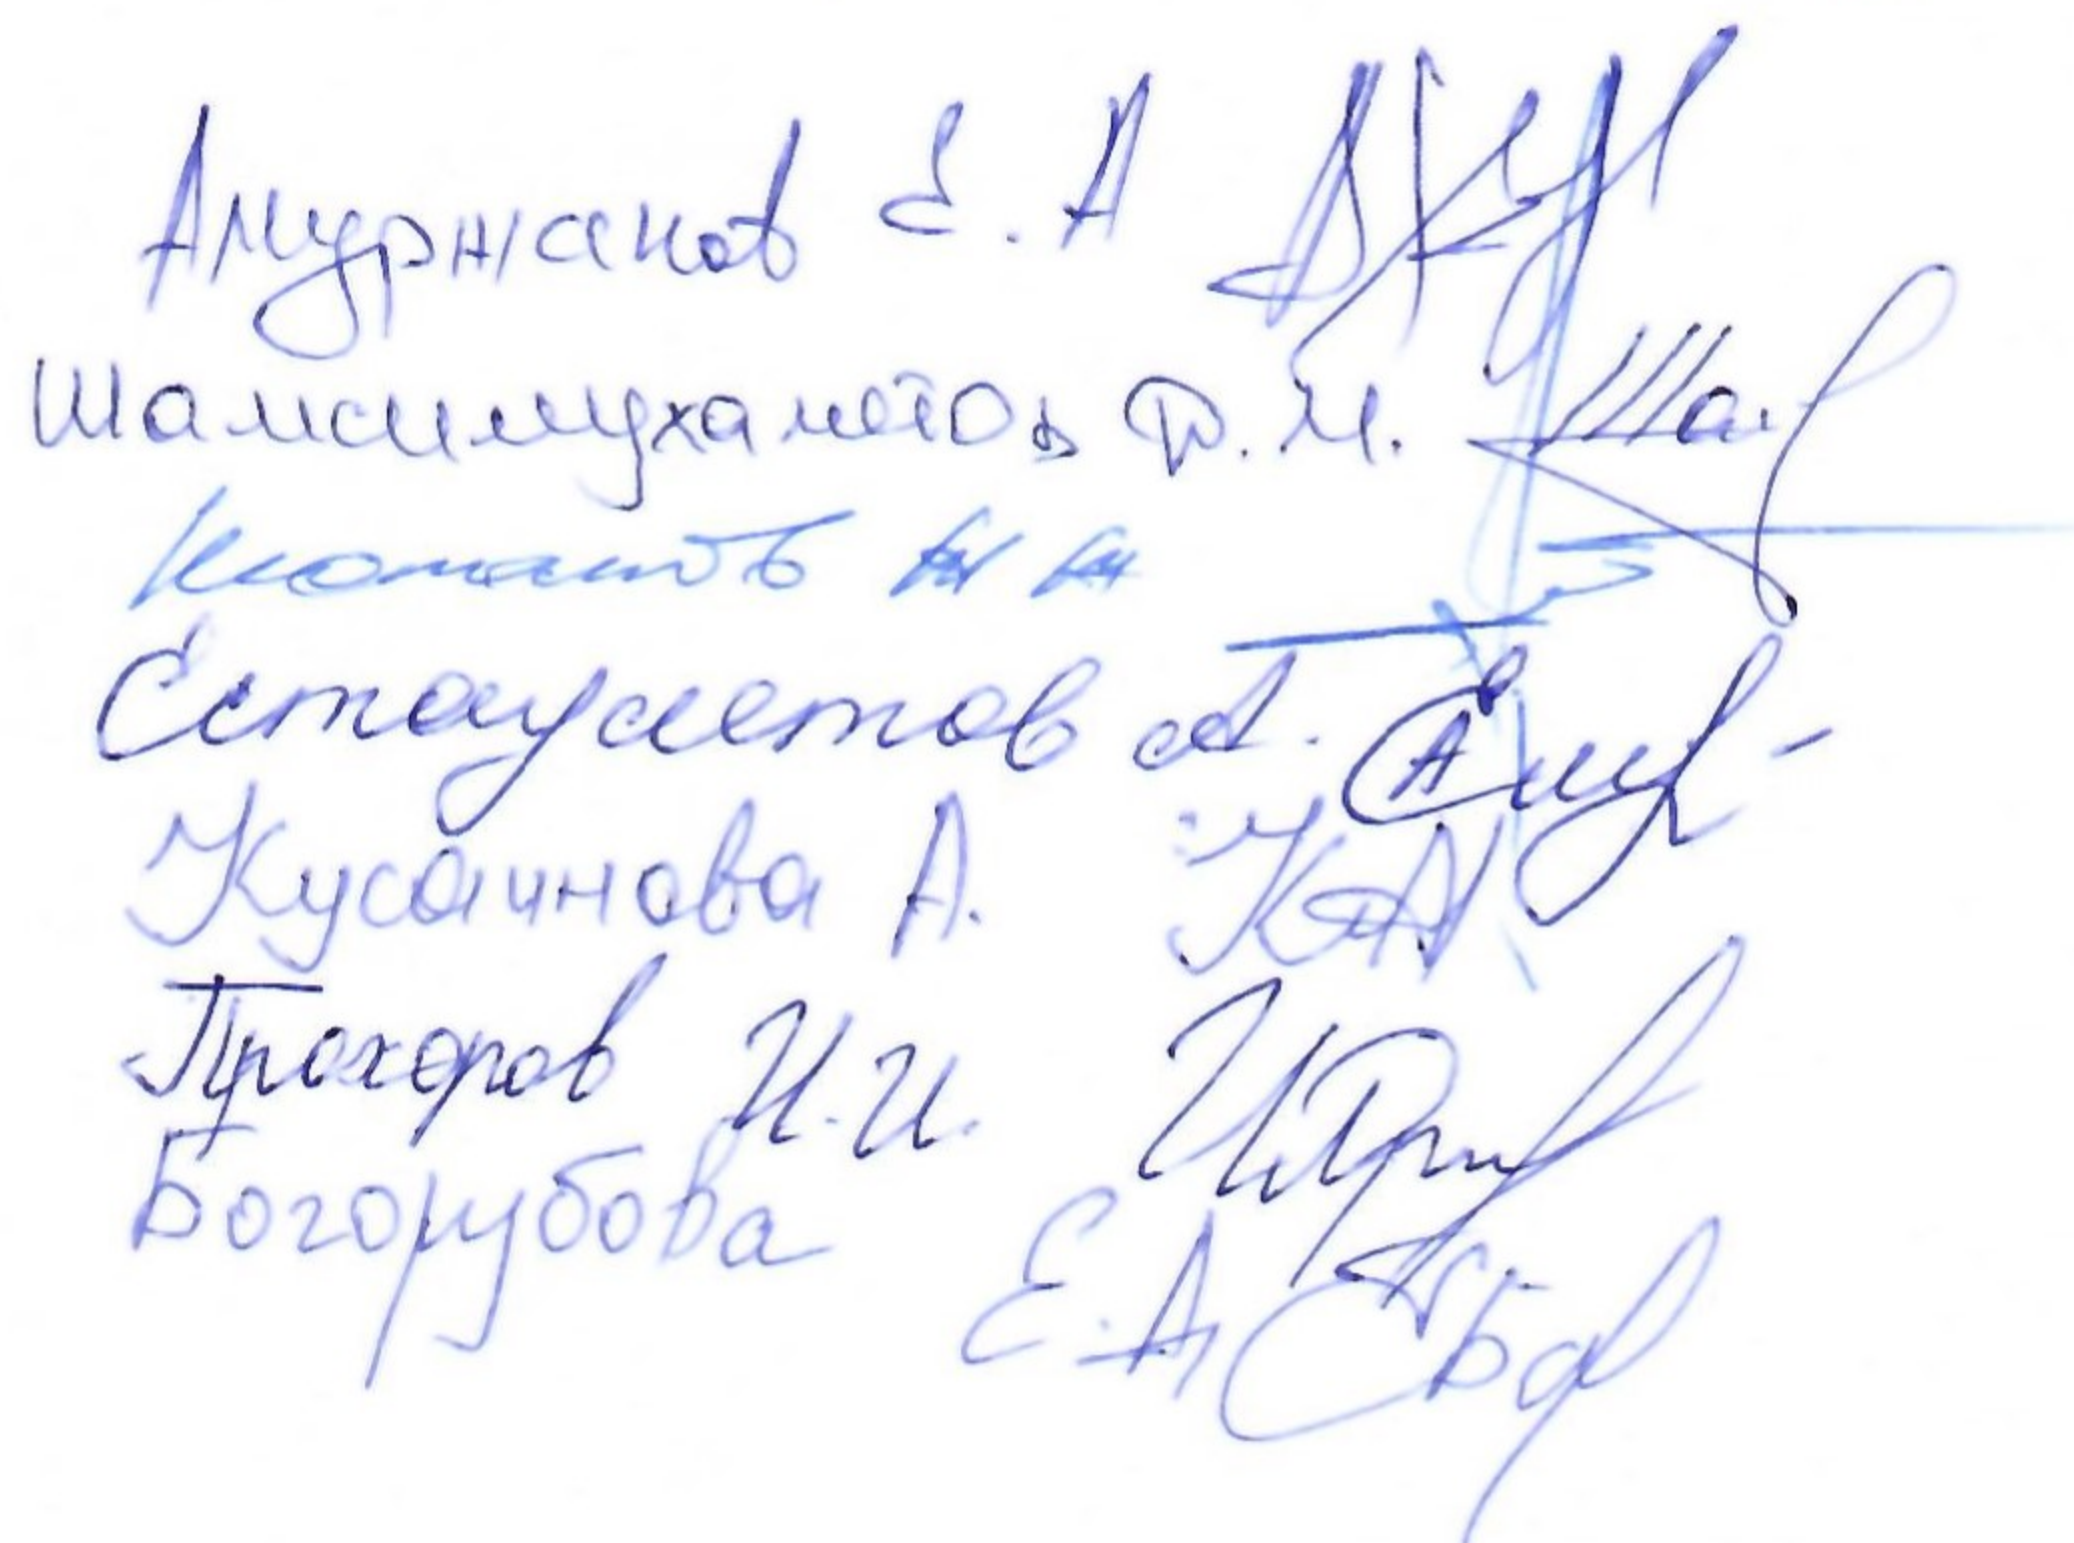 Амуржанов Е. А
Шамсимухаметов Ф. М.
Естаулетов А.
Кусаинова А.
Прохоров И. И.
Богорубова Е. А